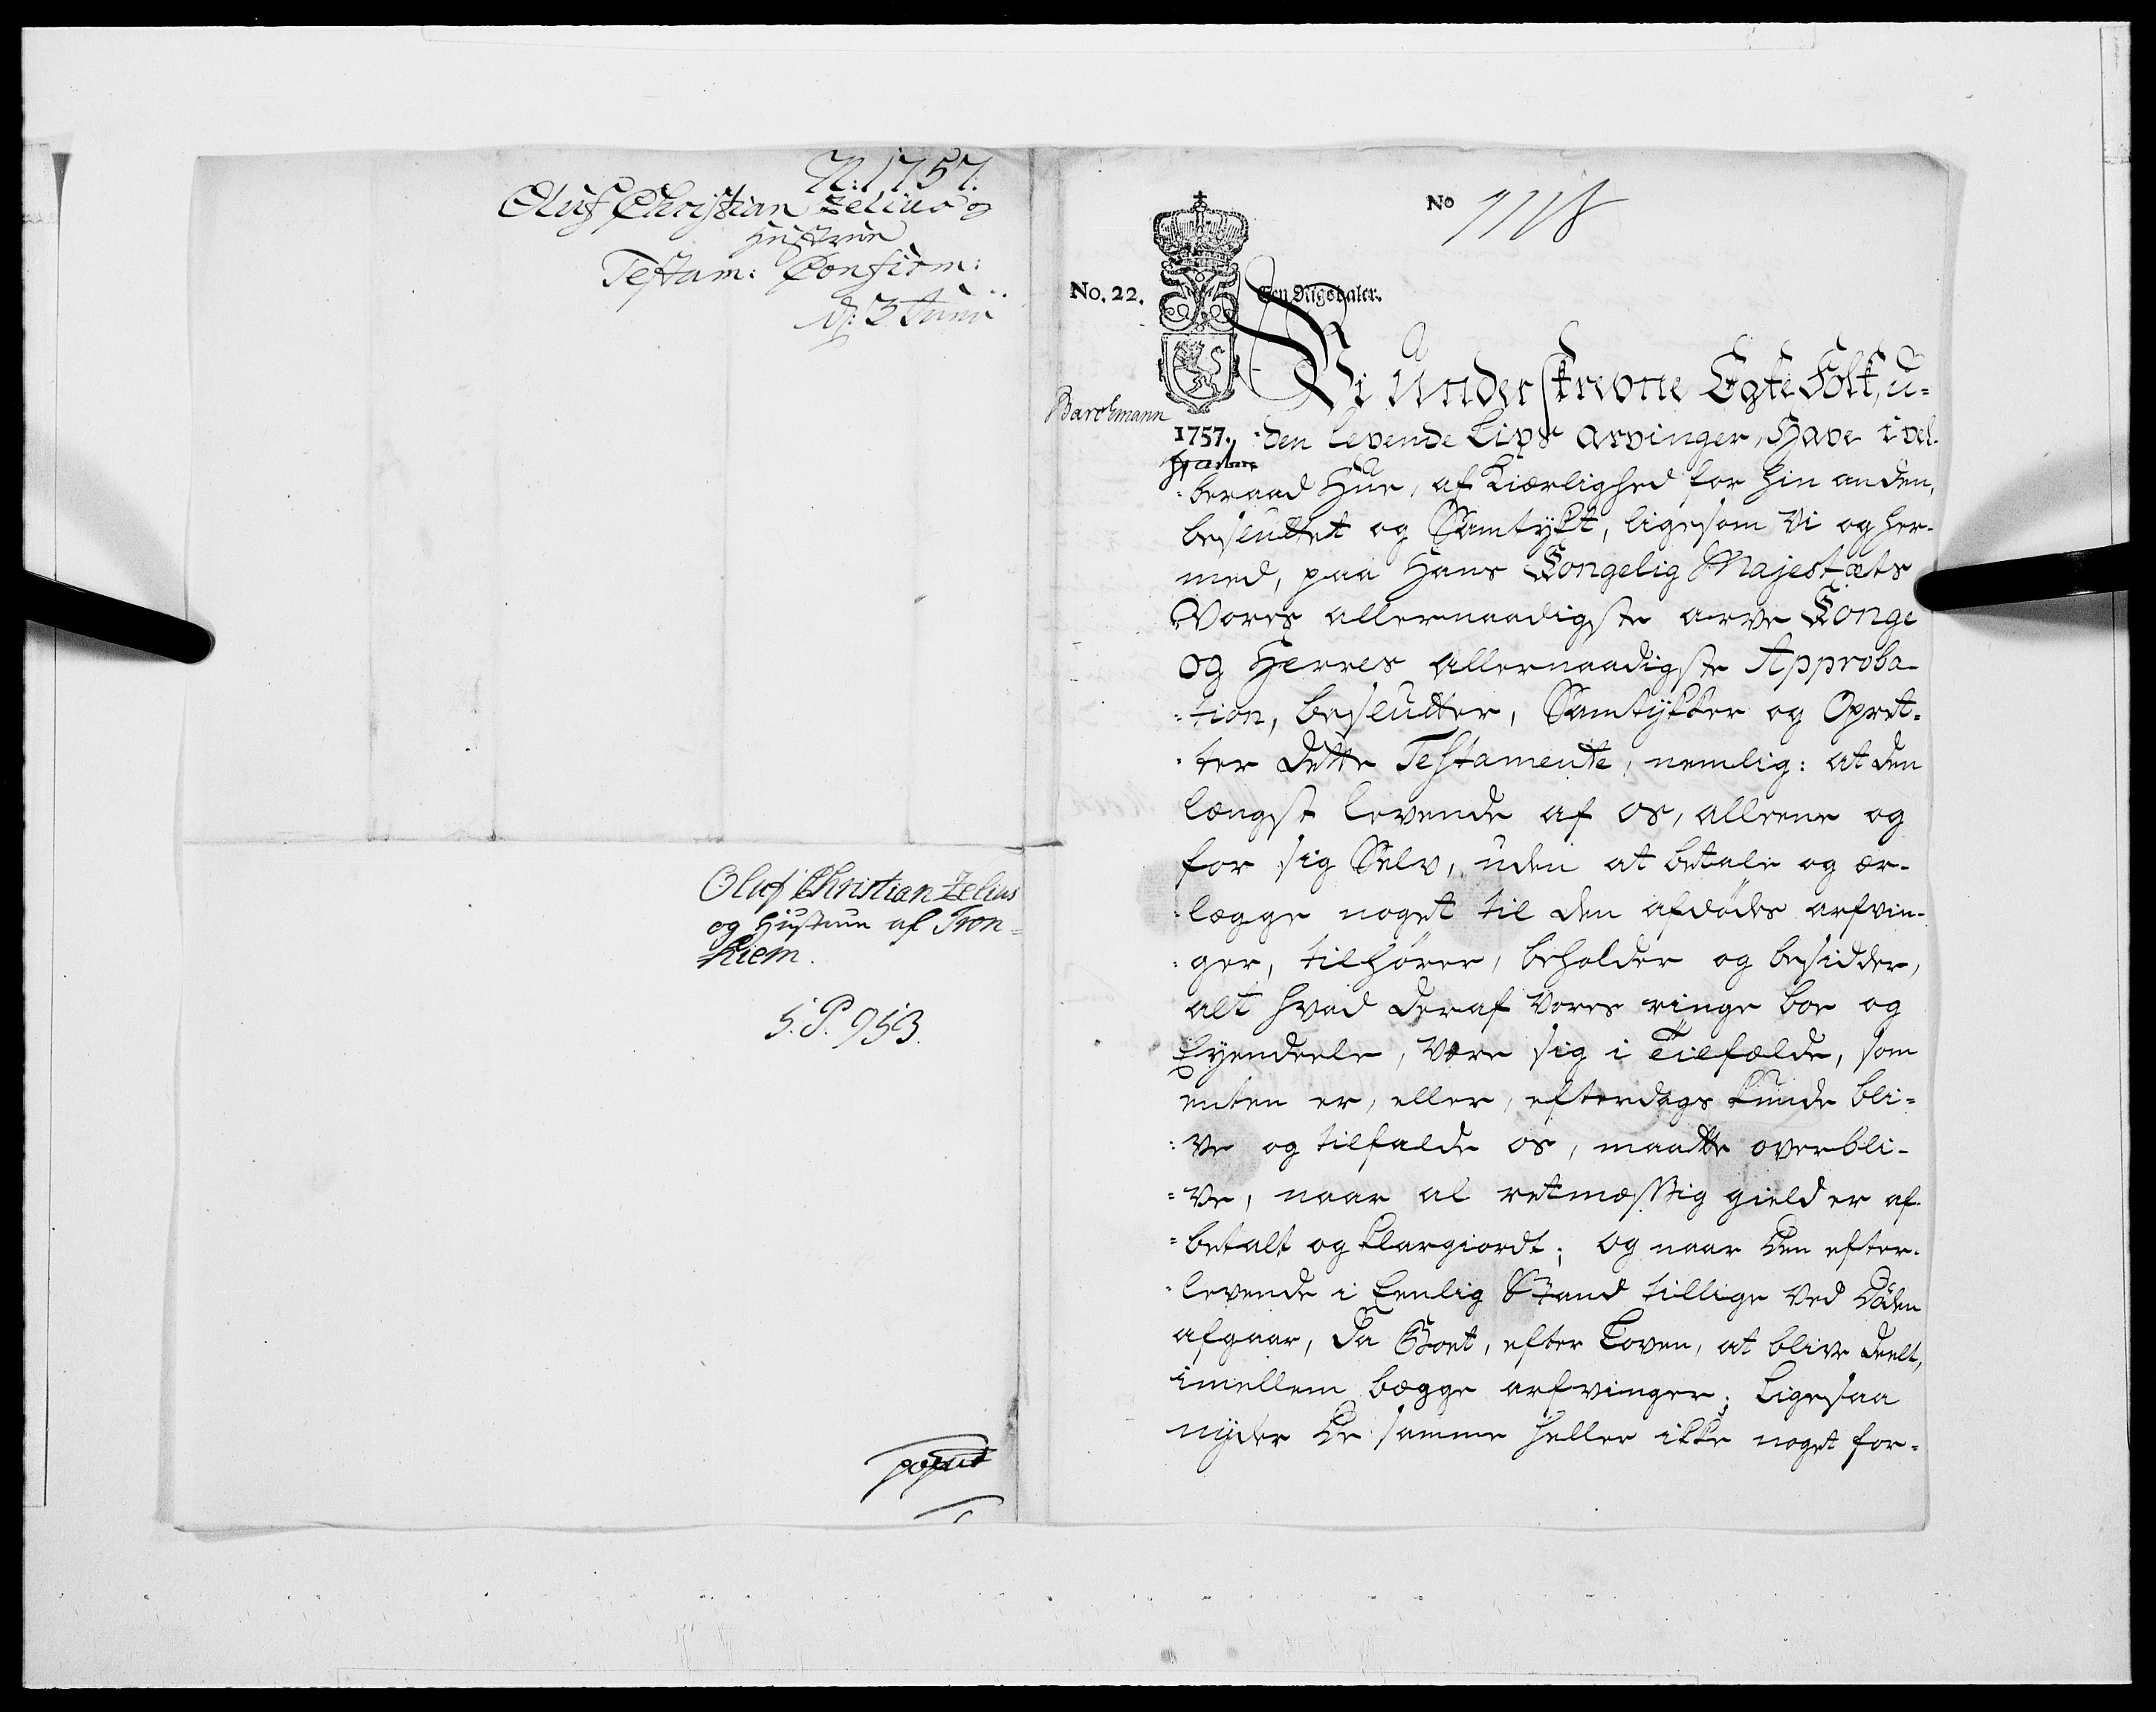 N: 1757.
Oluf Christian Zelius og
Hustrue
Testam: Confirm:
d: 3 Junii
Oluf Christian Zelius
og Hustrue af Tron=
hiem.
S. P. 953.
No 1118
No. 22.
Een Rigsdaler.
Barchmann
1757.
Vi Underskrevne Egte Folk, u=
=den levende Livs Arvinger, Have i vel-
=beraad Hue, af Kiærlighed for hin anden,
besluttet og Samtykt, ligesom Vi og her-
med, paa Hans Kongelig Majestæts
Vores allernaadigste arve Konge
og Herres allernaadigste Approba-
=tion, beslutter, Samtykker og Opret-
=ter dette Testamente, nemlig: at den
længst levende af os, alleene og
for sig Selv, uden at betale og er-
=lægge noget til den afdödes arfvin-
=ger, tilhörer, beholder og besidder,
alt hvad deraf Vores ringe boe og
Eyendeele, være sig i Tilfælde, som
enten er, eller, efterdags kunde bli=
=ve og tilfalde os, maatte overbli-
=ve, naar al retmæssig gield er af-
=betalt og klargiordt; og naar den efter-
=levende i Eenlig Stand tillige ved Döden
afgaar, da Boet, efter Loven, at blive deelt,
imellem begge arfvinger; Ligesaa
nyder de samme heller ikke noget for=